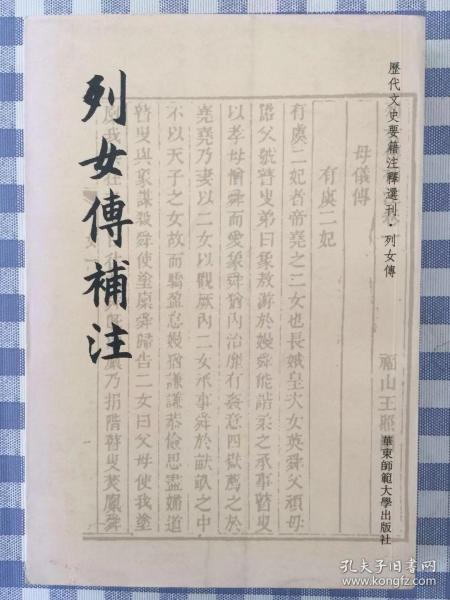 列女傳補注
歷代文史要籍注釋選刊·列女傳
華東師範大學出版社
福山王
母儀傳
有虞二妃
有虞二妃者帝堯之二女也長娥皇次女英舜父頑母
嚚父號瞽叟弟曰象敖游於嫚舜能諧柔之承事瞽叟
以孝母憎舜而愛象舜猶內治靡有姦意四嶽薦之於
堯堯乃妻以二女以觀厥內二女承事舜於畎畝之中
不以天子之女故而驕盈怠嫚猶謙謙恭儉思盡婦道
瞽叟與象謀殺舜使塗廩舜歸告二女曰父母使我塗
廩我其往乃捐階瞽叟焚廩舜
孔夫子旧书网